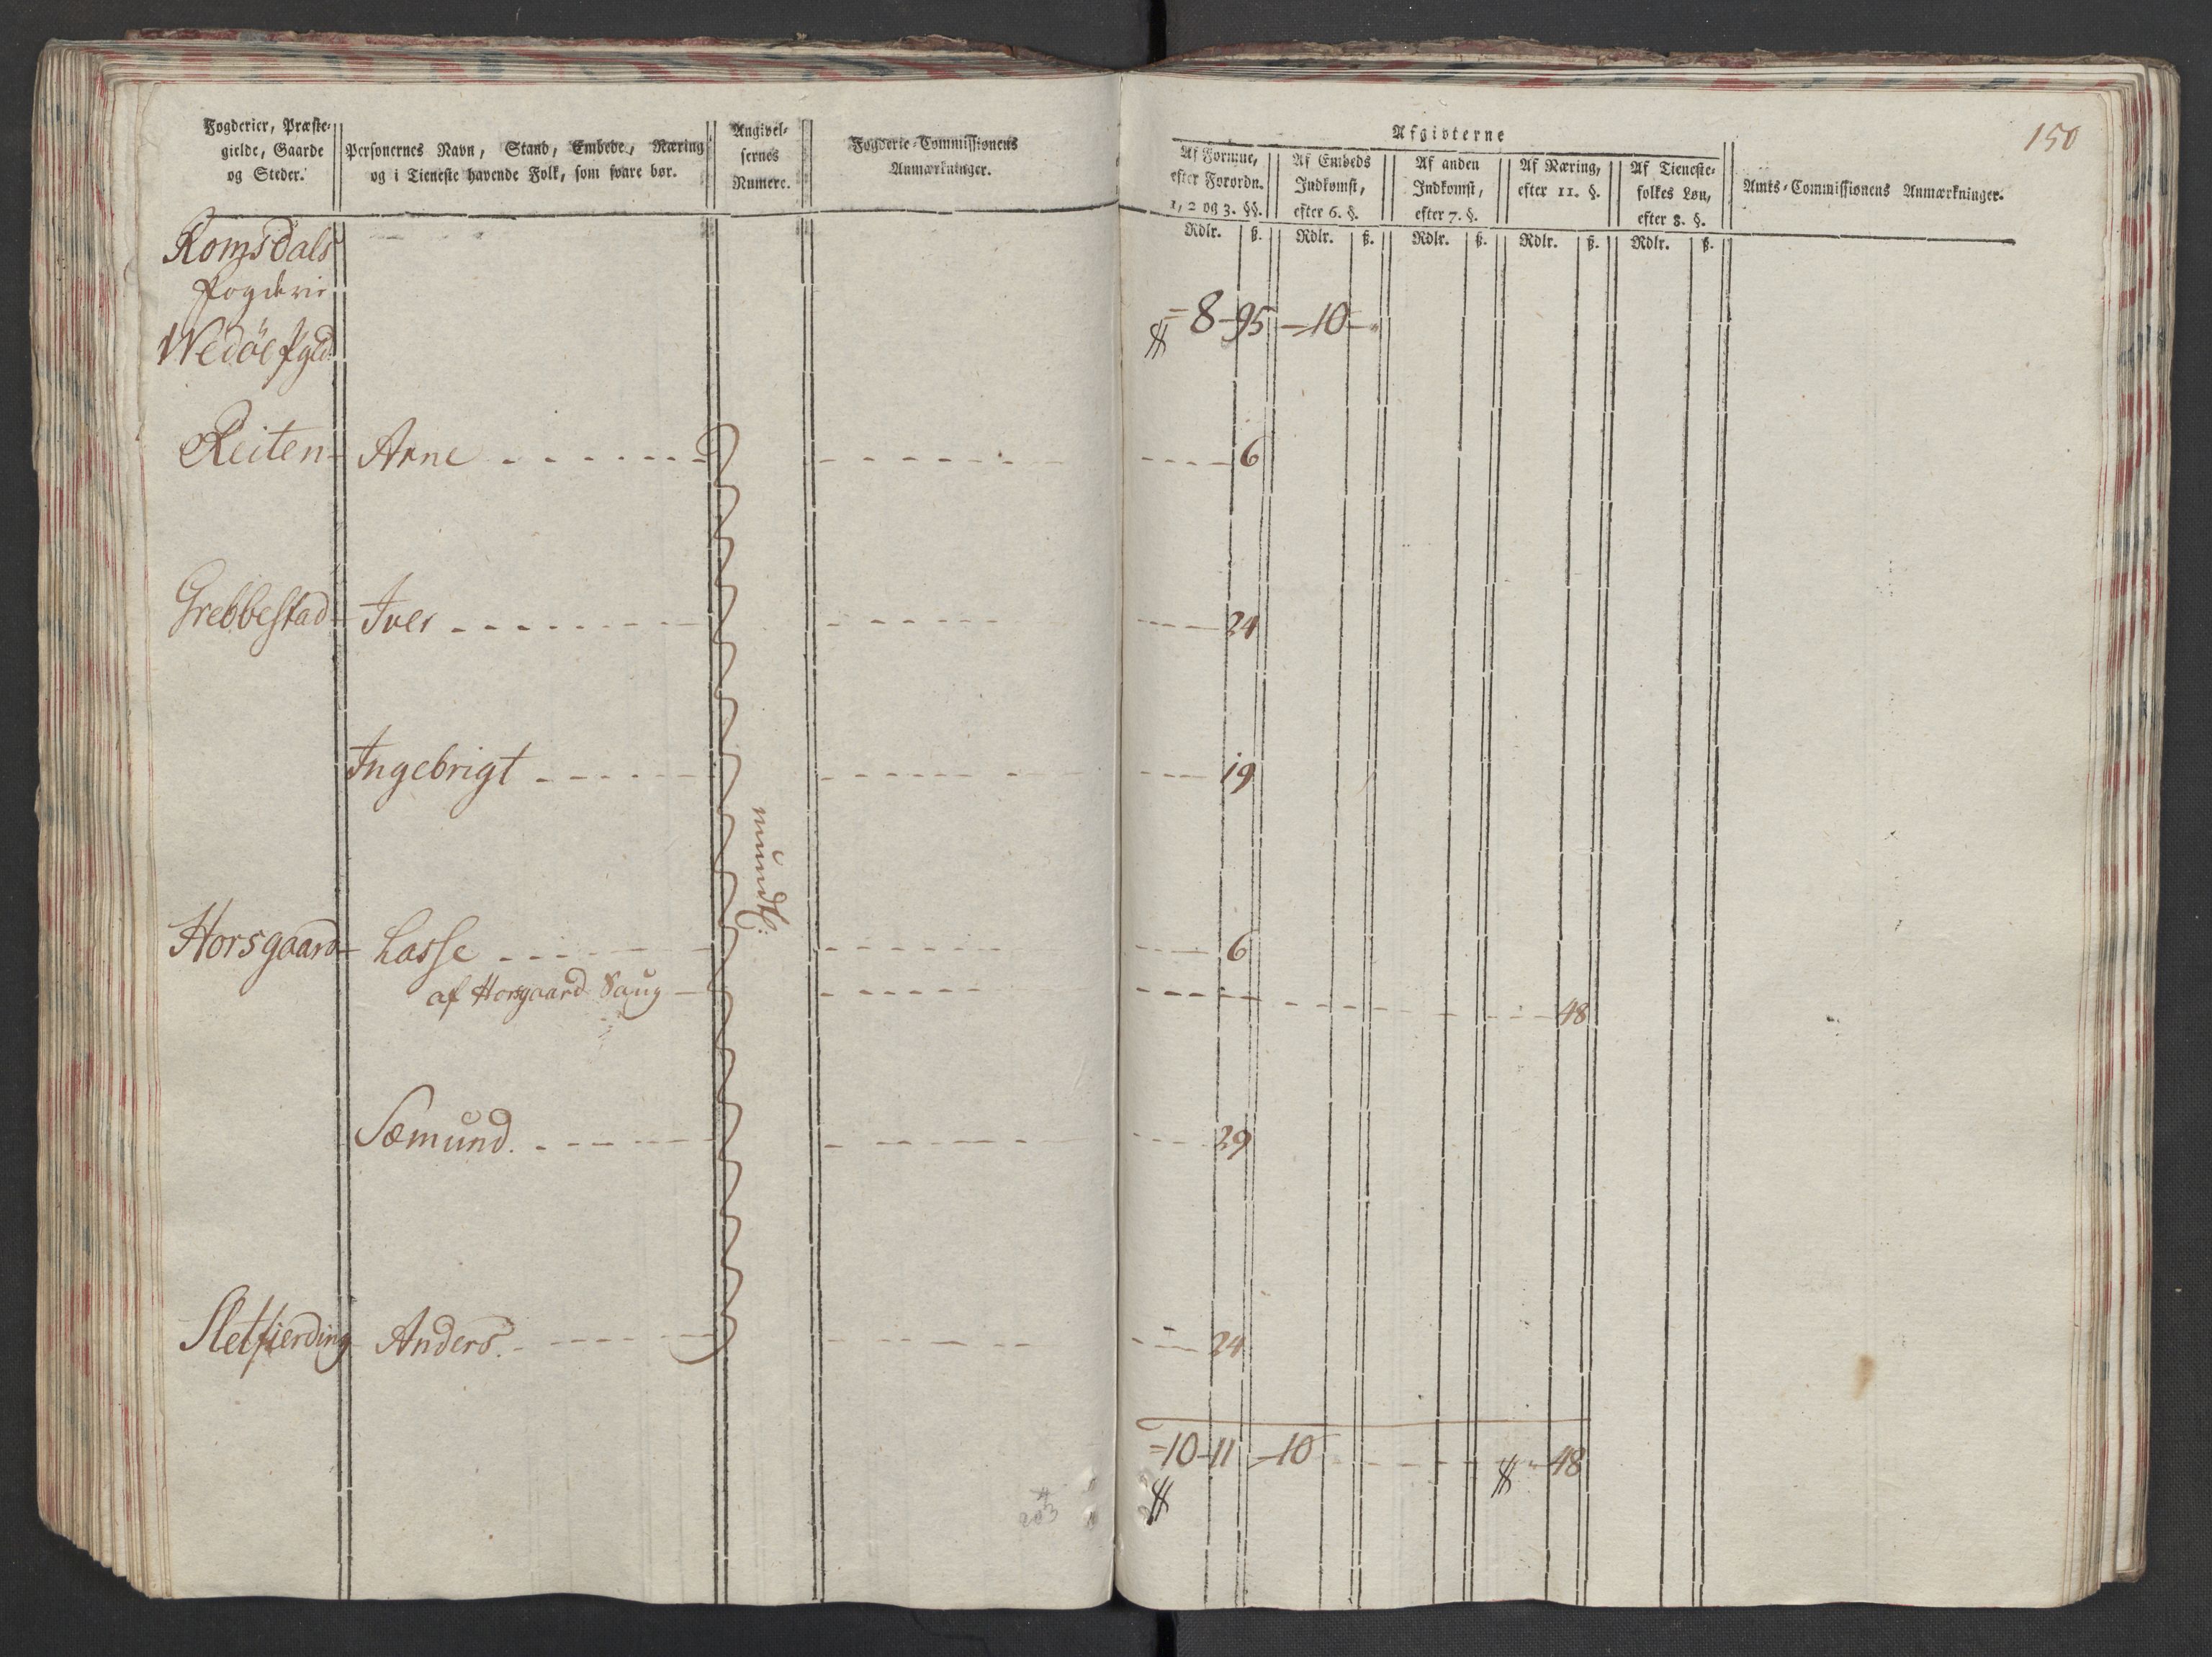 Fogderier, Præste-
gielde, Gaarde
og Steder.
Personernes Navn, Stand, Embede, Næring
og i Tieneste havende Folk, som svare bør.
Angivel-
sernes
Numere.
Fogderie-Commissionens
Anmærkninger.
150
Afgivterne
Af Formue,
efter Forordn.
1, 2 og 3. §§.
Af Embeds
Indkomst,
efter 6. §.
Af anden
Indkomst,
efter 7. §.
Af Næring,
efter 11. §.
Af Tieneste-
folkes Løn,
efter 8. §.
Amts-Commissionens Anmærkninger.
Rdlr. ß. Rdlr. ß. Rdlr. ß. Rdlr. ß. Rdlr. ß.
Romsdals
fogderie
Wedøe pgld.
8-95 -10-
Reiten Arne 6
Grebbestad Iver 24
Ingebrigt 19
mundtl:
Horsgaard Lasse 6
af Horsgaard Saug 48
Sæmund. 29
Sletfierding Anders. 24
10-11 -10 48